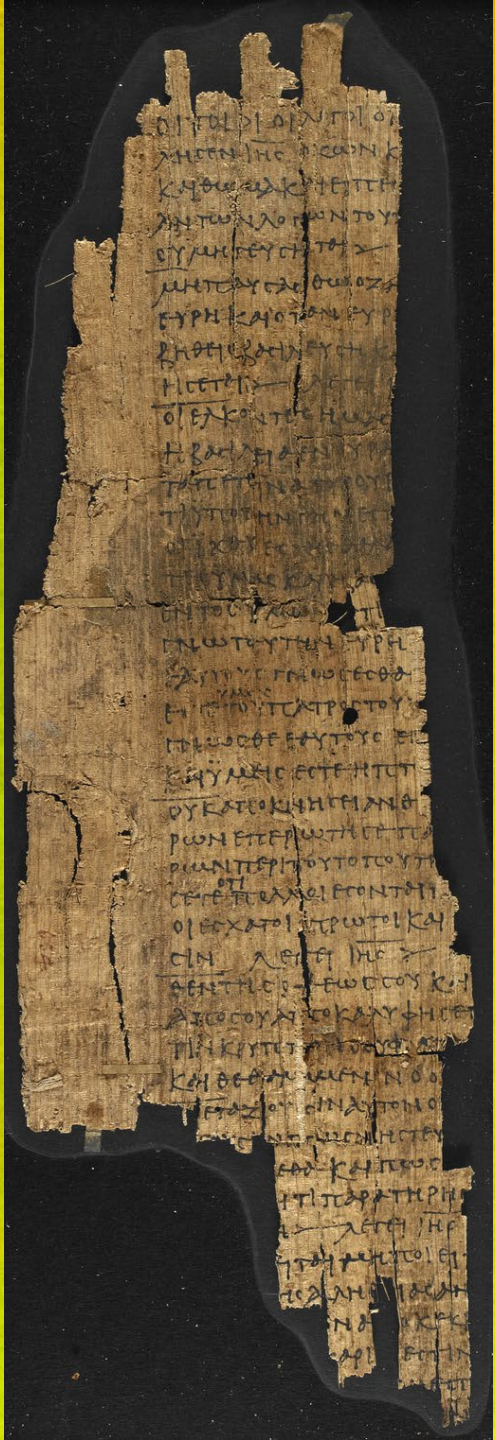 ΟΙ ΤΟΙΟΙ ΟΙ ΛΟΓΟΙ ΟΙ
ΛΗϹΕΝ ΙΗϹ Ο ΖΩΝ Κ
ΚΑΙ ΘΩΜΑ ΚΑΙ ΕΙΠΕΝ
ΑΝ ΤΩΝ ΛΟΓΩΝ ΤΟΥΤ
ΟΥ ΜΗ ΓΕΥϹΗΤΑΙ
ΜΗ ΠΑΥϹΑϹΘΩ Ο ΖΗ
ΕΥΡΗ ΚΑΙ ΟΤΑΝ ΕΥΡ
ΒΗΘΕΙϹ ΒΑϹΙΛΕΥϹΗ Κ
ΗϹΕΤΑΙ ΛΕΓΕΙ
ΟΙ ΕΛΚΟΝΤΕϹ ΗΜΑϹ
Η ΒΑϹΙΛΕΙΑ ΕΝ ΟΥΡΑ
ΤΑ ΠΕΤΕΙΝΑ ΤΟΥ ΟΥΡ
ΤΙ ΥΠΟ ΤΗΝ ΓΗΝ ΕϹΤ
ΟΙ ΙΧΘΥΕϹ ΤΗϹ ΘΑΛΑ
ΤΕϹ ΥΜΑϹ ΚΑΙ Η ΒΑϹ
ΕΝΤΟϹ ΥΜΩΝ ΤΙ
ΓΝΩ ΤΑΥΤΗΝ ΕΥΡΗ
ΕΑΥΤΟΥϹ ΓΝΩϹΕϹΘΑ
ΥΜΕΙϹ ΤΟΥ ΠΑΤΡΟϹ ΤΟΥ
ΓΝΩϹΘΕ ΕΑΥΤΟΥϹ ΕΝ
ΚΑΙ ΫΜΕΙϹ ΕϹΤΕ Η ΠΤ
ΟΥΚ ΑΠΟΚΝΗϹΕΙ ΑΝΘ
ΡΩΝ ΕΠΕΡΩΤΗϹΕ ΠΑ
ΡΩΝ ΠΕΡΙ ΤΟΥ ΤΟΠΟΥ ΤΗ
ϹΕΤΕ ΟΤΙ ΠΟΛΛΟΙ ΕϹΟΝΤΑΙ Π
ΟΙ ΕϹΧΑΤΟΙ ΠΡΩΤΟΙ ΚΑΙ
ϹΙΝ ΛΕΓΕΙ ΙΗϹ
ΘΕΝ ΤΗϹ ΟΨΕΩϹ ϹΟΥ ΚΑΙ
ΑΠΟ ϹΟΥ ΑΠΟΚΑΛΥΦΗϹΕΤ
ΤΙΝ ΚΡΥΠΤΟΝ Ο ΟΥ ΦΑΝ
ΚΑΙ ΘΕΘΑΜΜΕΝΟΝ Ο Ο
ΕΤΑΖΟΥϹΙΝ ΑΥΤΟΝ Ο
ΠΩϹ ΝΗϹΤΕΥ
ΕΘΑ ΚΑΙ ΠΩϹ
Ι ΤΙ ΠΑΡΑΤΗΡΗϹ
Ν ΛΕΓΕΙ ΙΗϹ
ΕΙΤΑΙ ΜΗ ΠΟΙΕΙ
ΗϹ ΑΛΗΘΕΙΑϹ ΑΝ
Ν Α ΟΚΕΚ
ΑΡΙ ΕϹΤΙΝ
ΕϹΤ